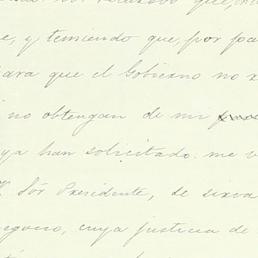 e, y temiendo que, por pa
ara que el Gobierno no
i no obtengan de mi
ya han solicitado. me v
Sór Presidente, se sirva
egocio, cuya justicia de